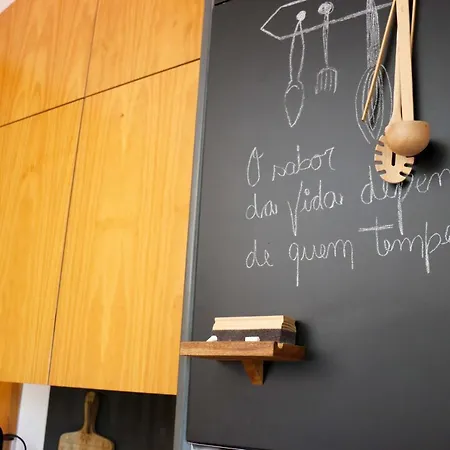 O sabor
da vida depen
de quem tempe